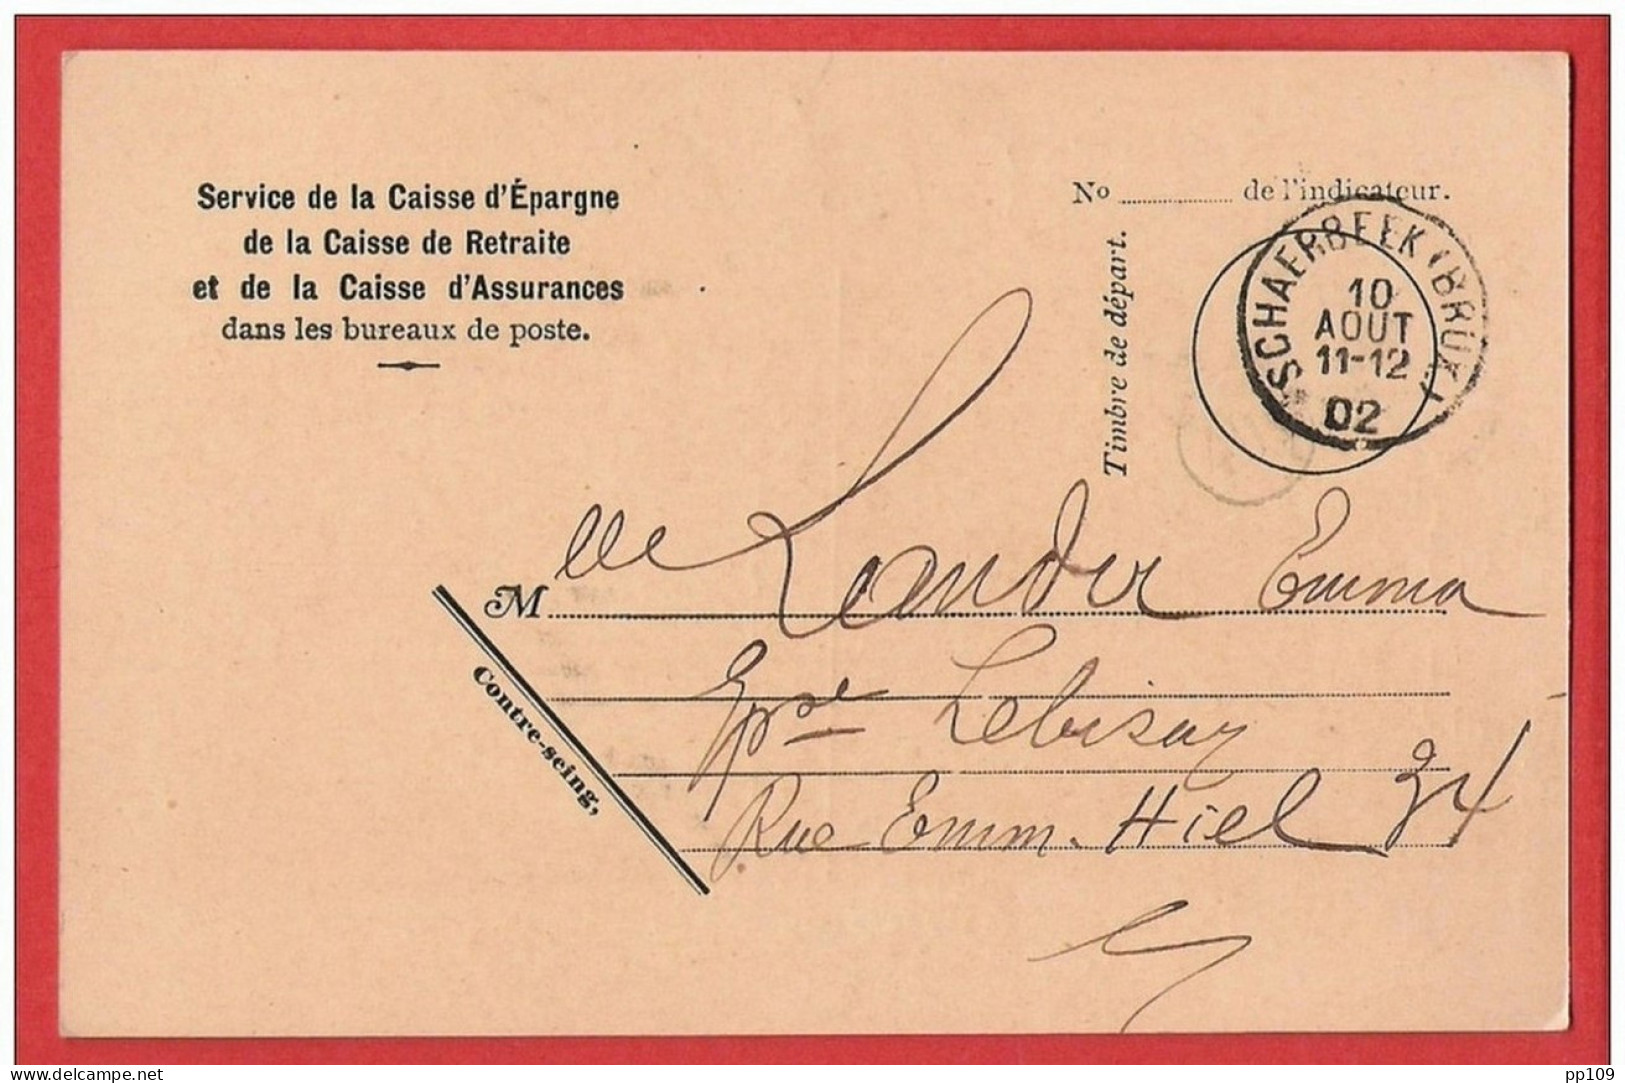 Service de la Caisse d'Épargne
de la Caisse de Retraite
et de la Caisse d'Assurances
dans les bureaux de poste.
No ........ de l'indicateur.
Timbre de départ.
SCHAERBEEK (BRUX.)
10
AOUT
11-12
02
Mlle Lander Emma
Epse Lebisay
Rue Emm. Hiel 34
Contre-seing,
Delcampe.net
pp109